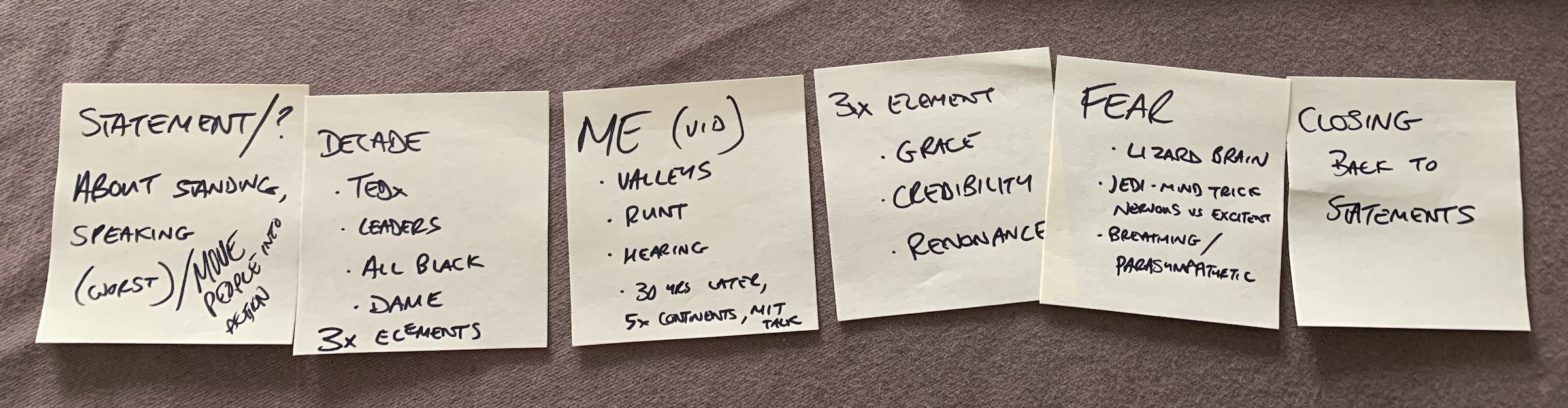 STATEMENT/?
ABOUT STANDING,
SPEAKING
(WORST)/MOVE
PEOPLE INTO
ACTION
DECADE
· TEDx
· LEADERS
· ALL BLACK
· DAME
3x ELEMENTS
ME (VID)
· VALLEYS
· RUNT
· HEARING
· 30 YRS LATER,
5x CONTINENTS, MIT
TALK
3x ELEMENT
· GRACE
· CREDIBILITY
· RENONANCE
FEAR
· LIZARD BRAIN
· JEDI-MIND TRICK
NERVOUS VS EXCITENT
· BREATHING/
PARASYMPATHETIC
CLOSING
BACK TO
STATEMENTS